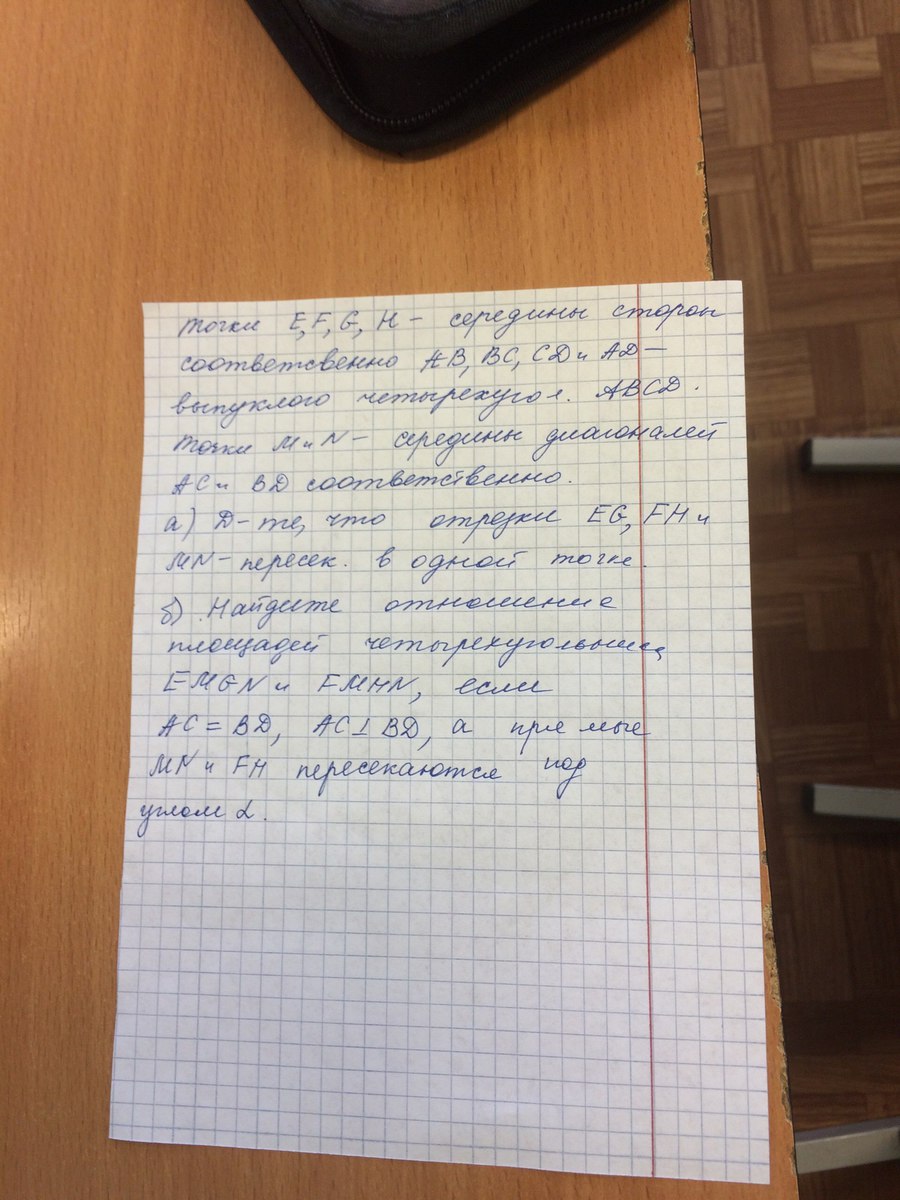 Точки E, F, G, H – середины сторон
соответсвенно AB, BC, CD и AD –
выпуклого четырехугол. ABCD.
Точки M и N – середины диагоналей
AC и BD соответственно.
а) Д-те, что отрезки EG, FH и
MN – пересек. в одной точке.
б) Найдите отношение
площадей четырехугольника
EMGN и FMHN, если
AC = BD, AC ⊥ BD, а прямые
MN и FH пересекаются под
углом α.